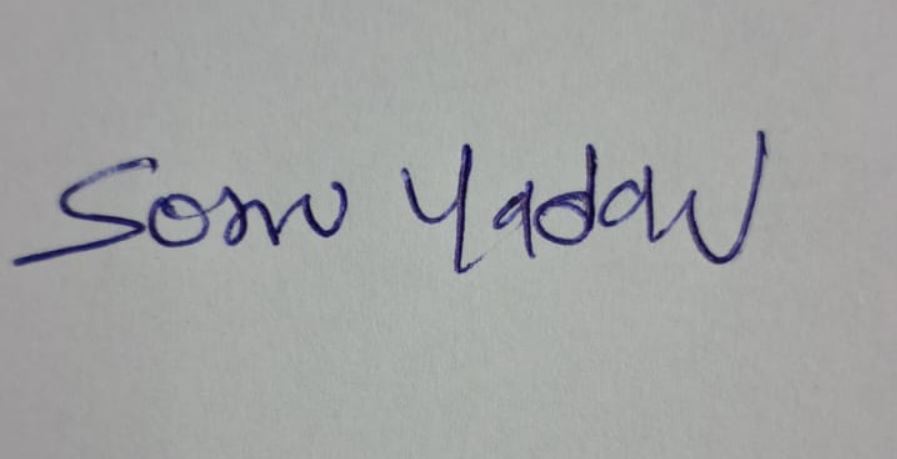 Sonu Yadav